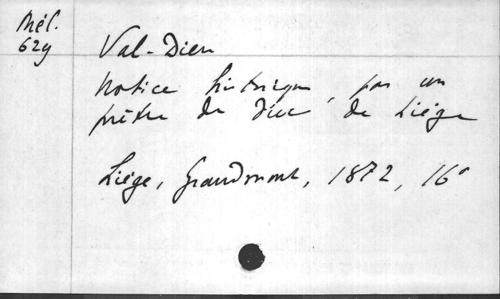 Mél.
629
Val-Dieu
Notice historique, par un
prêtre du dioc. de Liége
Liége, Grandmont, 1872, 16°